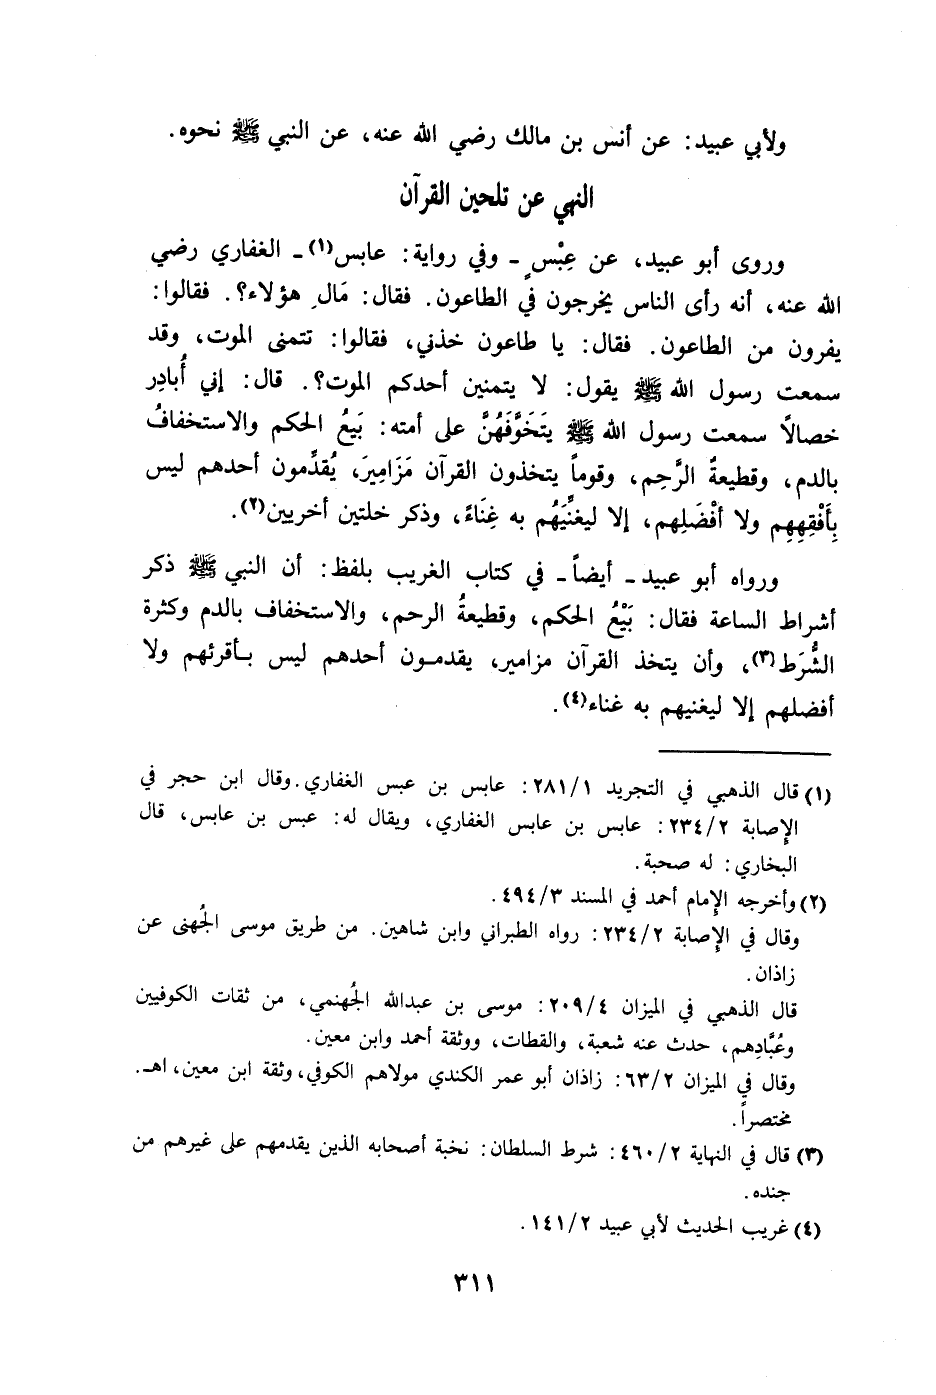 ولأبي عبيد: عن أنس بن مالك رضي الله عنه، عن النبي ﷺ نحوه.
النهي عن تلحين القرآن
وروى أبو عبيد، عن عِبْسٍ ـ وفي رواية: عابس(١) ـ الغفاري رضي
الله عنه، أنه رأى الناس يخرجون في الطاعون. فقال: مَالِ هؤلاء؟. فقالوا:
يفرون من الطاعون. فقال: يا طاعون خذني، فقالوا: تتمنى الموت، وقد
سمعت رسول الله ﷺ يقول: لا يتمنين أحدكم الموت؟. قال: إني أُبادِر
خصالاً سمعت رسول الله ﷺ يَتَخَوَّفَهُنَّ على أمته: بَيعُ الحكم والاستخفافُ
بالدم، وقطيعةُ الرَّحِم، وقوماً يتخذون القرآن مَزَامِيرَ، يُقدِّمون أحدهم ليس
بِأَفْقِهِهِم ولا أفْضَلِهم، إلا ليغنِّيَهُم به غِنَاءً، وذكر خلتين أخريين(٢).
ورواه أبو عبيد ـ أيضاً ـ في كتاب الغريب بلفظ: أن النبي ﷺ ذكر
أشراط الساعة فقال: بَيْعُ الحكم، وقطيعةُ الرحم، والاستخفاف بالدم وكثرة
الشُّرَط(٣)، وأن يتخذ القرآن مزامير، يقدمون أحدهم ليس بأقرئهم ولا
أفضلهم إلا ليغنيهم به غناء(٤).
(١) قال الذهبي في التجريد ٢٨١/١: عابس بن عبس الغفاري. وقال ابن حجر في
الإصابة ٢٣٤/٢: عابس بن عابس الغفاري، ويقال له: عبس بن عابس، قال
البخاري: له صحبة.
(٢) وأخرجه الإمام أحمد في المسند ٤٩٤/٣.
وقال في الإصابة ٢٣٤/٢: رواه الطبراني وابن شاهين. من طريق موسى الجُهنى عن
زاذان.
قال الذهبي في الميزان ٢٠٩/٤: موسى بن عبدالله الجُهنمي، من ثقات الكوفيين
وعُبَّادِهم، حدث عنه شعبة، والقطات، ووثقة أحمد وابن معين.
وقال في الميزان ٦٣/٢: زاذان أبو عمر الكندي مولاهم الكوفي، وثقة ابن معين، اهـ.
مختصراً.
(٣) قال في النهاية ٤٦٠/٢: شرط السلطان: نخبة أصحابه الذين يقدمهم على غيرهم من
جنده.
(٤) غريب الحديث لأبي عبيد ١٤١/٢.
٣١١